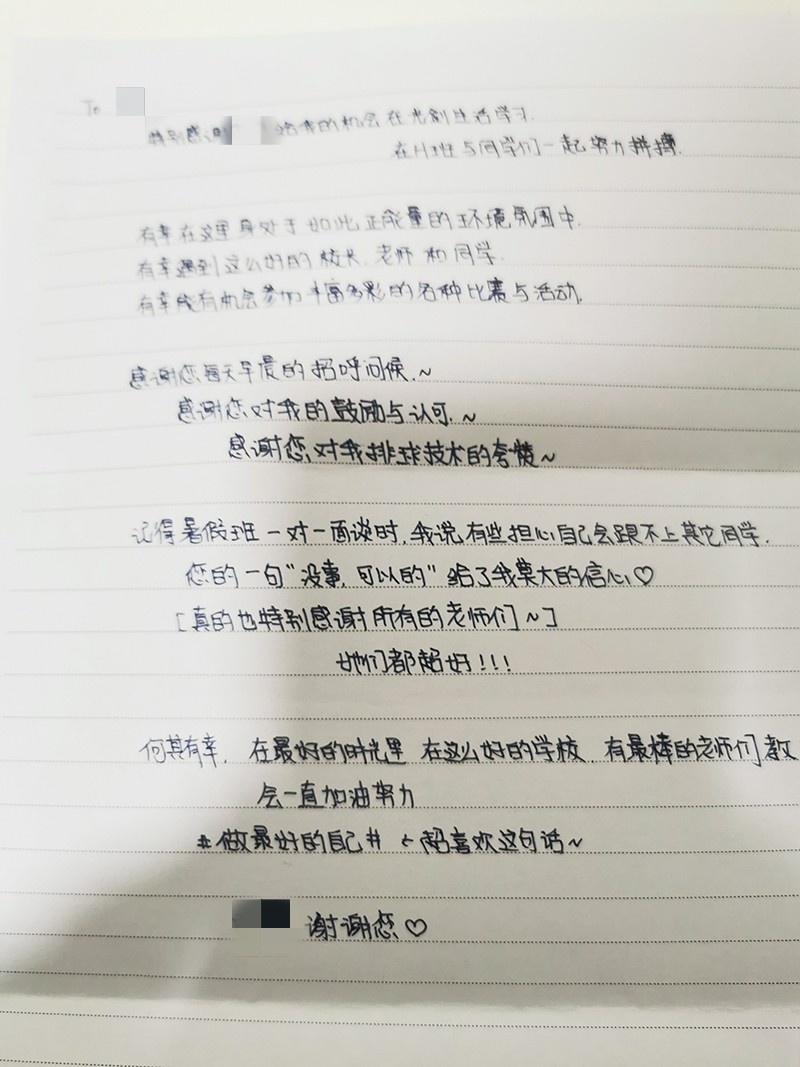 To
特别感谢 给我的机会在光创生活学习.
在H班与同学们一起努力拼搏.
有幸在这里身处于如此正能量的环境氛围中.
有幸遇到这么好的校长.老师和同学.
有幸能有机会参加丰富多彩的各种比赛与活动.
感谢您每天早晨的招呼问候.~
感谢您对我的鼓励与认可.~
感谢您对我排球技术的夸赞~
记得暑假班一对一面谈时,我说有些担心自己会跟不上其它同学.
您的一句"没事,可以的"给了我莫大的信心♡
[真的也特别感谢所有的老师们~]
她们都超好!!!
何其有幸, 在最好的时光里 在这么好的学校. 有最棒的老师们教
会一直加油努力
#做最好的自己# ←超喜欢这句话~
谢谢您♡